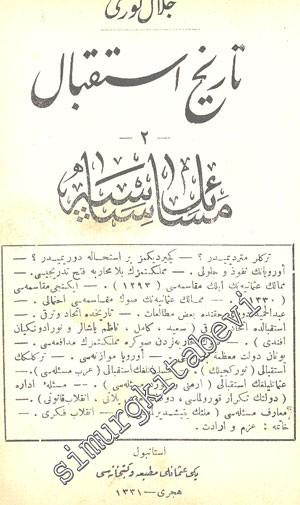 جلال نوری
تاریخ استقبال
— ۲ —
مسائل سیاسیه
تركلر متردیمیدر ؟ — كچیردیكمز بر استحاله دوریمیدر ؟ —
آوروپانك نفوذ و حلولی . — مملكتمزك بلا محاربه فتح تدریجیسی .
ممالك عثمانیه‌نك ایلك مقاسمه‌سی ( ۱۲۹۳ ) . — ایكنجی مقاسمه‌سی
( ۱۳۳۰ ) . — ممالك عثمانیه‌نك صوك مقاسمه‌سی احتمالی . —
عبدالحمید حقنده بعض مطالعات . — تاریخده اتحاد و ترقی . —
استقبالده اتحاد و ترقی ( سعید ، كامل ، ناظم پاشالر و نورادونكیان
افندی ) . — صوكره مملكتمزك مدافعه‌سی . —
یونان دولت معظمه — آوروپا موازنه‌سی . — تركلكك
استقبالی ( تورکجیلك ) . — استقبالی ( عرب مسئله‌سی ) . —
عثمانلیلغك استقبالی ( ارمنی مسئله‌سی ) . — مسئلهٔ اداره
( دولتك تكرار قورولماسی ، پلانی . — انقلاب قانونی ) . —
معارف مسئله‌سی ( ملتك یتیشدیرلمه‌سی . — انقلاب فكری . —
خاتمه : عزم و ارادت .
استانبول
یكی عثمانلی مطبعه و كتبخانه‌سی
هجری — ۱۳۳۱
simurgkitabevi